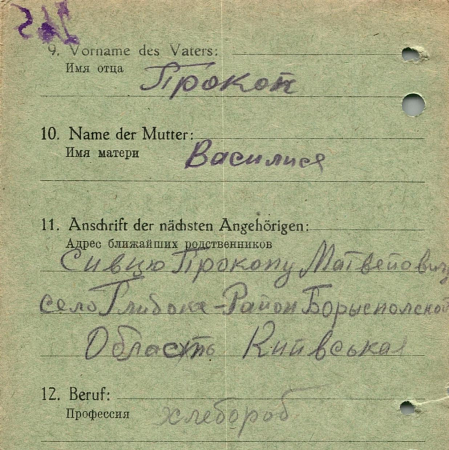 9. Vorname des Vaters:
Имя отца
Прокоп
10. Name der Mutter:
Имя матери
Василися
11. Anschrift der nächsten Angehörigen:
Адрес ближайших родственников
Сивцю Прокопу Матвеповичу
село Глибоке - Район Борыспольской
Область Київськая
12. Beruf:
Профессия
хлебороб